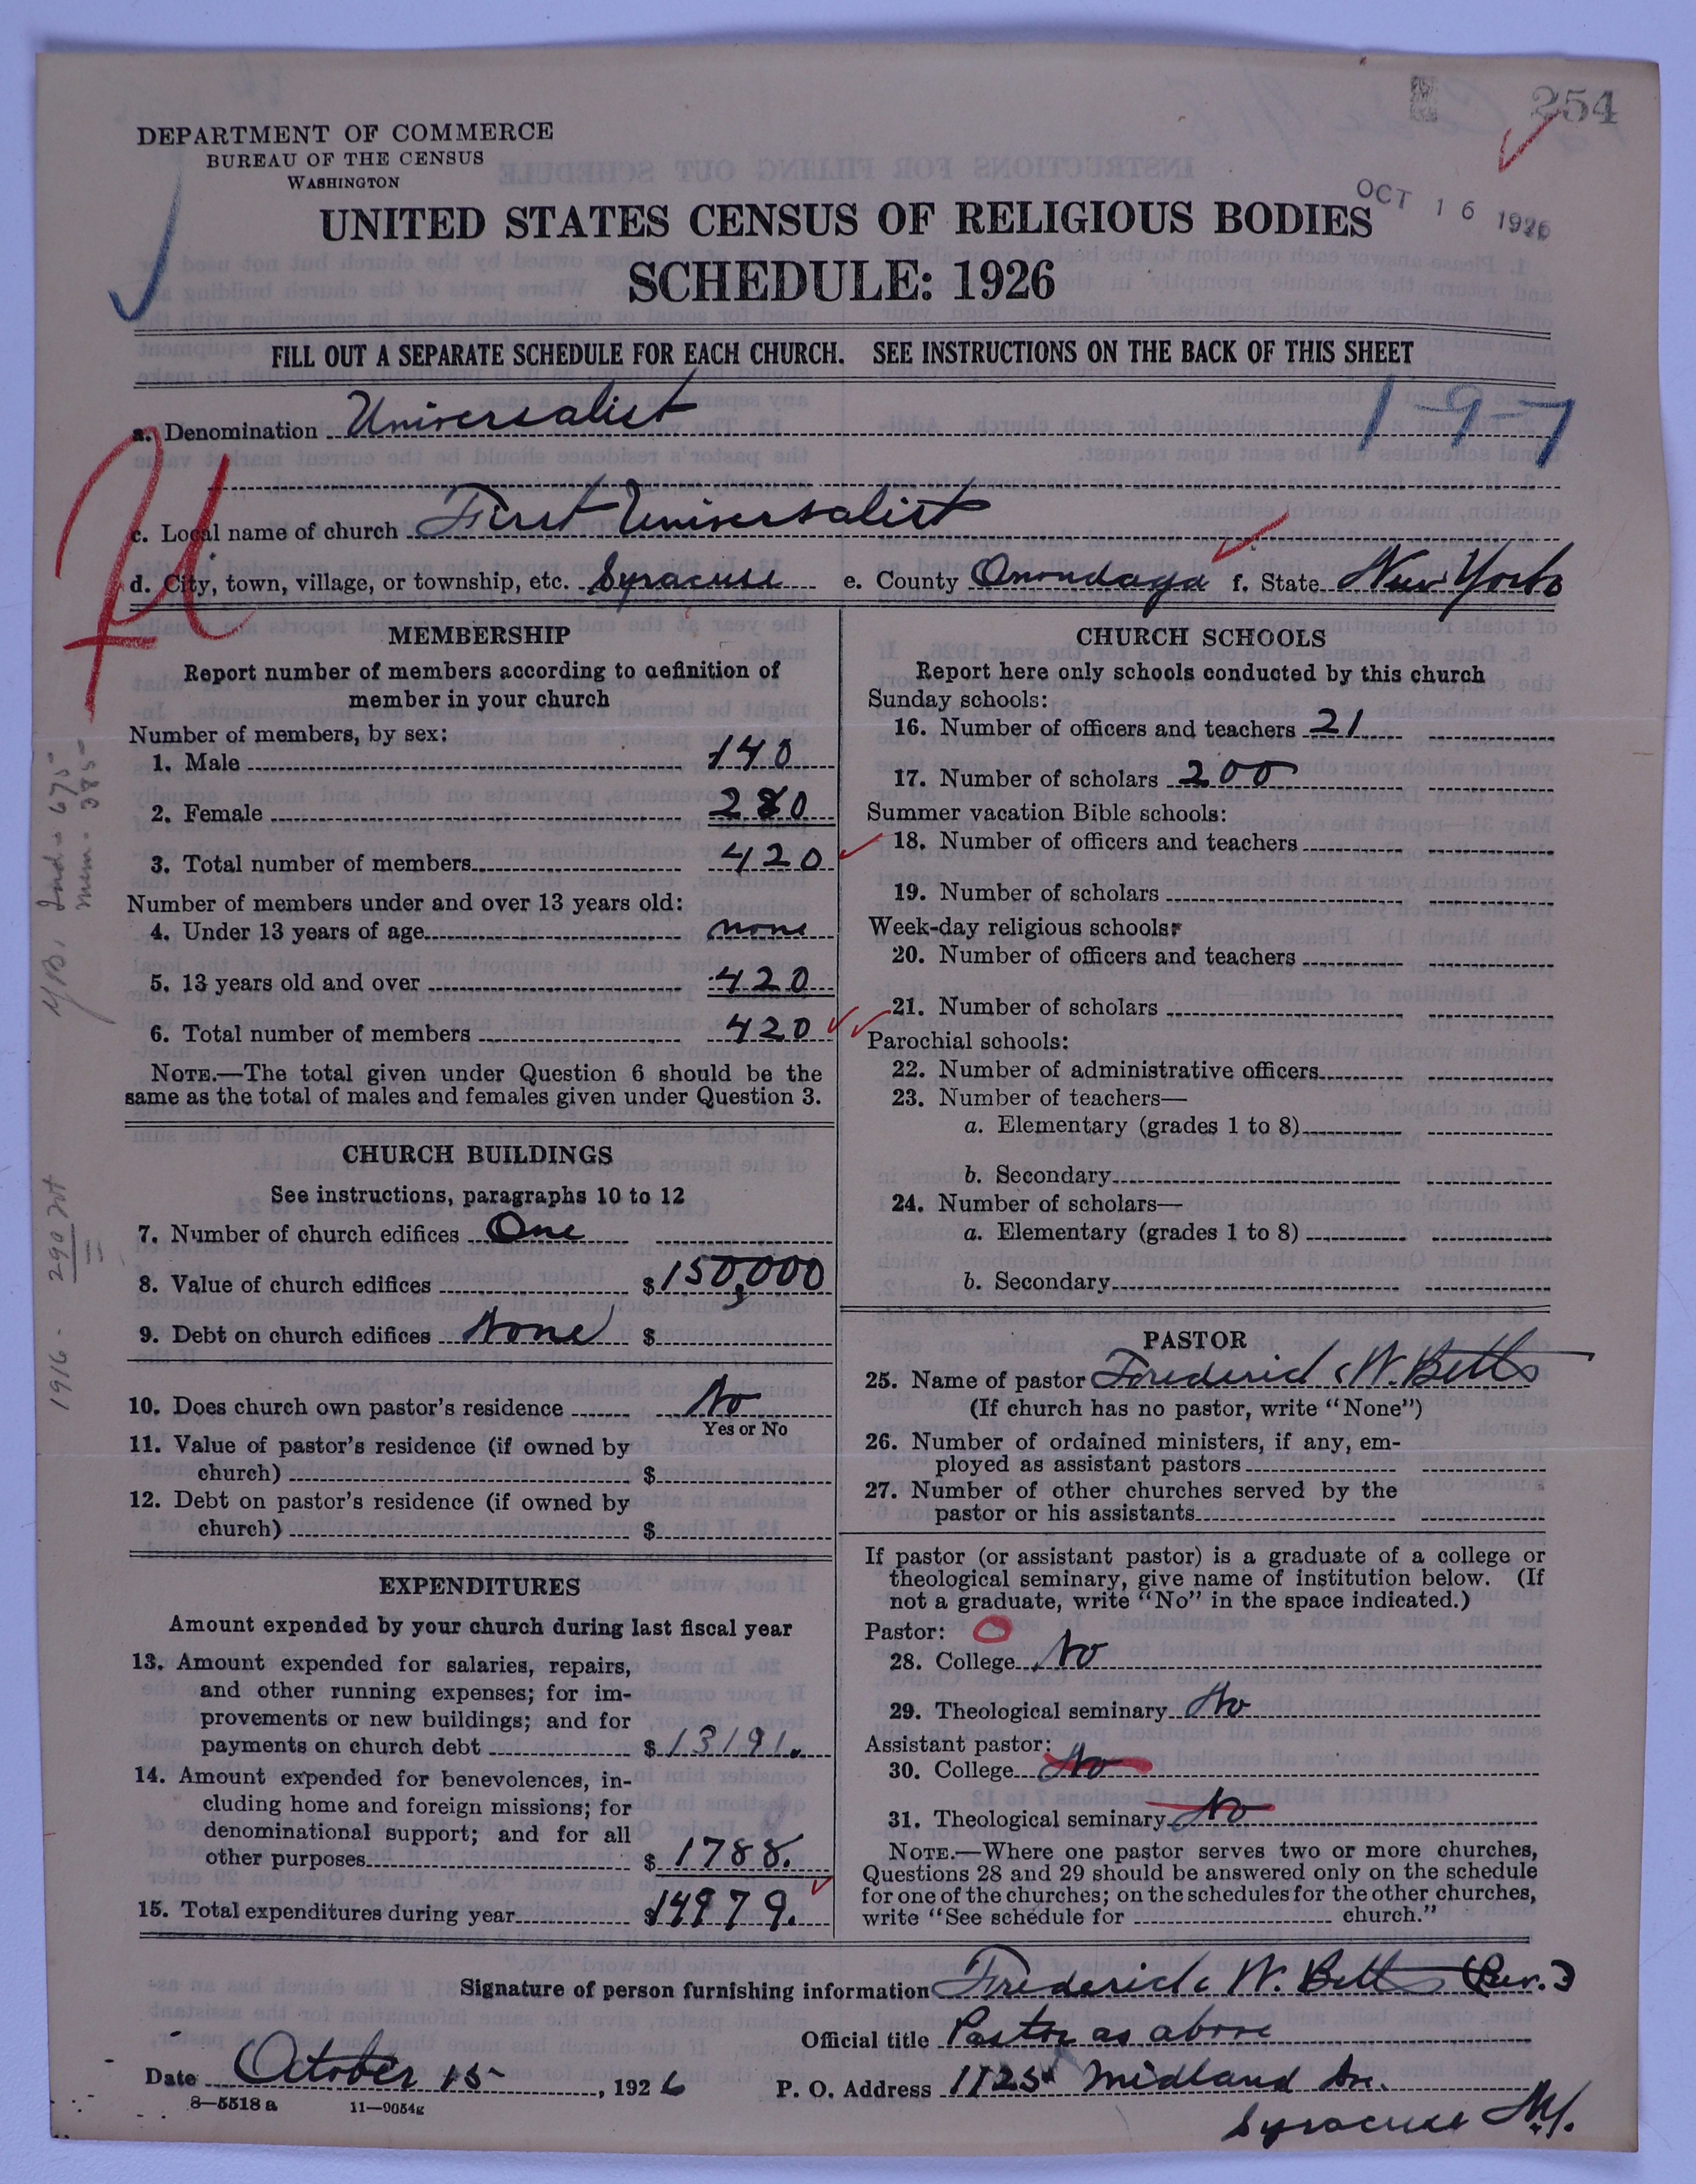 254
DEPARTMENT OF COMMERCE
BUREAU OF THE CENSUS
WASHINGTON
OCT 16 1926
UNITED STATES CENSUS OF RELIGIOUS BODIES
SCHEDULE: 1926
FILL OUT A SEPARATE SCHEDULE FOR EACH CHURCH. SEE INSTRUCTIONS ON THE BACK OF THIS SHEET
a. Denomination Universalist 1-9-7
c. Local name of church First Universalist
d. City, town, village, or township, etc. Syracuse e. County Onondaga f. State New York
MEMBERSHIP
Report number of members according to definition of
member in your church
Number of members, by sex:
1. Male 140
2. Female 280
3. Total number of members 420
Number of members under and over 13 years old:
4. Under 13 years of age none
5. 13 years old and over 420
6. Total number of members 420
NOTE.—The total given under Question 6 should be the
same as the total of males and females given under Question 3.
CHURCH BUILDINGS
See instructions, paragraphs 10 to 12
7. Number of church edifices One
8. Value of church edifices $150,000
9. Debt on church edifices None $
10. Does church own pastor's residence No
Yes or No
11. Value of pastor's residence (if owned by
church) $
12. Debt on pastor's residence (if owned by
church) $
EXPENDITURES
Amount expended by your church during last fiscal year
13. Amount expended for salaries, repairs,
and other running expenses; for im-
provements or new buildings; and for
payments on church debt $13191.
14. Amount expended for benevolences, in-
cluding home and foreign missions; for
denominational support; and for all
other purposes $1788.
15. Total expenditures during year $14979.
CHURCH SCHOOLS
Report here only schools conducted by this church
Sunday schools:
16. Number of officers and teachers 21
17. Number of scholars 200
Summer vacation Bible schools:
18. Number of officers and teachers
19. Number of scholars
Week-day religious schools:
20. Number of officers and teachers
21. Number of scholars
Parochial schools:
22. Number of administrative officers
23. Number of teachers—
a. Elementary (grades 1 to 8)
b. Secondary
24. Number of scholars—
a. Elementary (grades 1 to 8)
b. Secondary
PASTOR
25. Name of pastor Frederick W. Betts
(If church has no pastor, write "None")
26. Number of ordained ministers, if any, em-
ployed as assistant pastors
27. Number of other churches served by the
pastor or his assistants
If pastor (or assistant pastor) is a graduate of a college or
theological seminary, give name of institution below. (If
not a graduate, write "No" in the space indicated.)
Pastor:
28. College No
29. Theological seminary No
Assistant pastor:
30. College No
31. Theological seminary No
NOTE.—Where one pastor serves two or more churches,
Questions 28 and 29 should be answered only on the schedule
for one of the churches; on the schedules for the other churches,
write "See schedule for church."
Signature of person furnishing information Frederick W. Betts (Rev.)
Official title Pastor as above
Date October 15, 1926 P. O. Address 1125 Midland Av.
Syracuse N.Y.
8—5518 a 11—9054g
mem - 385
1916 - 290